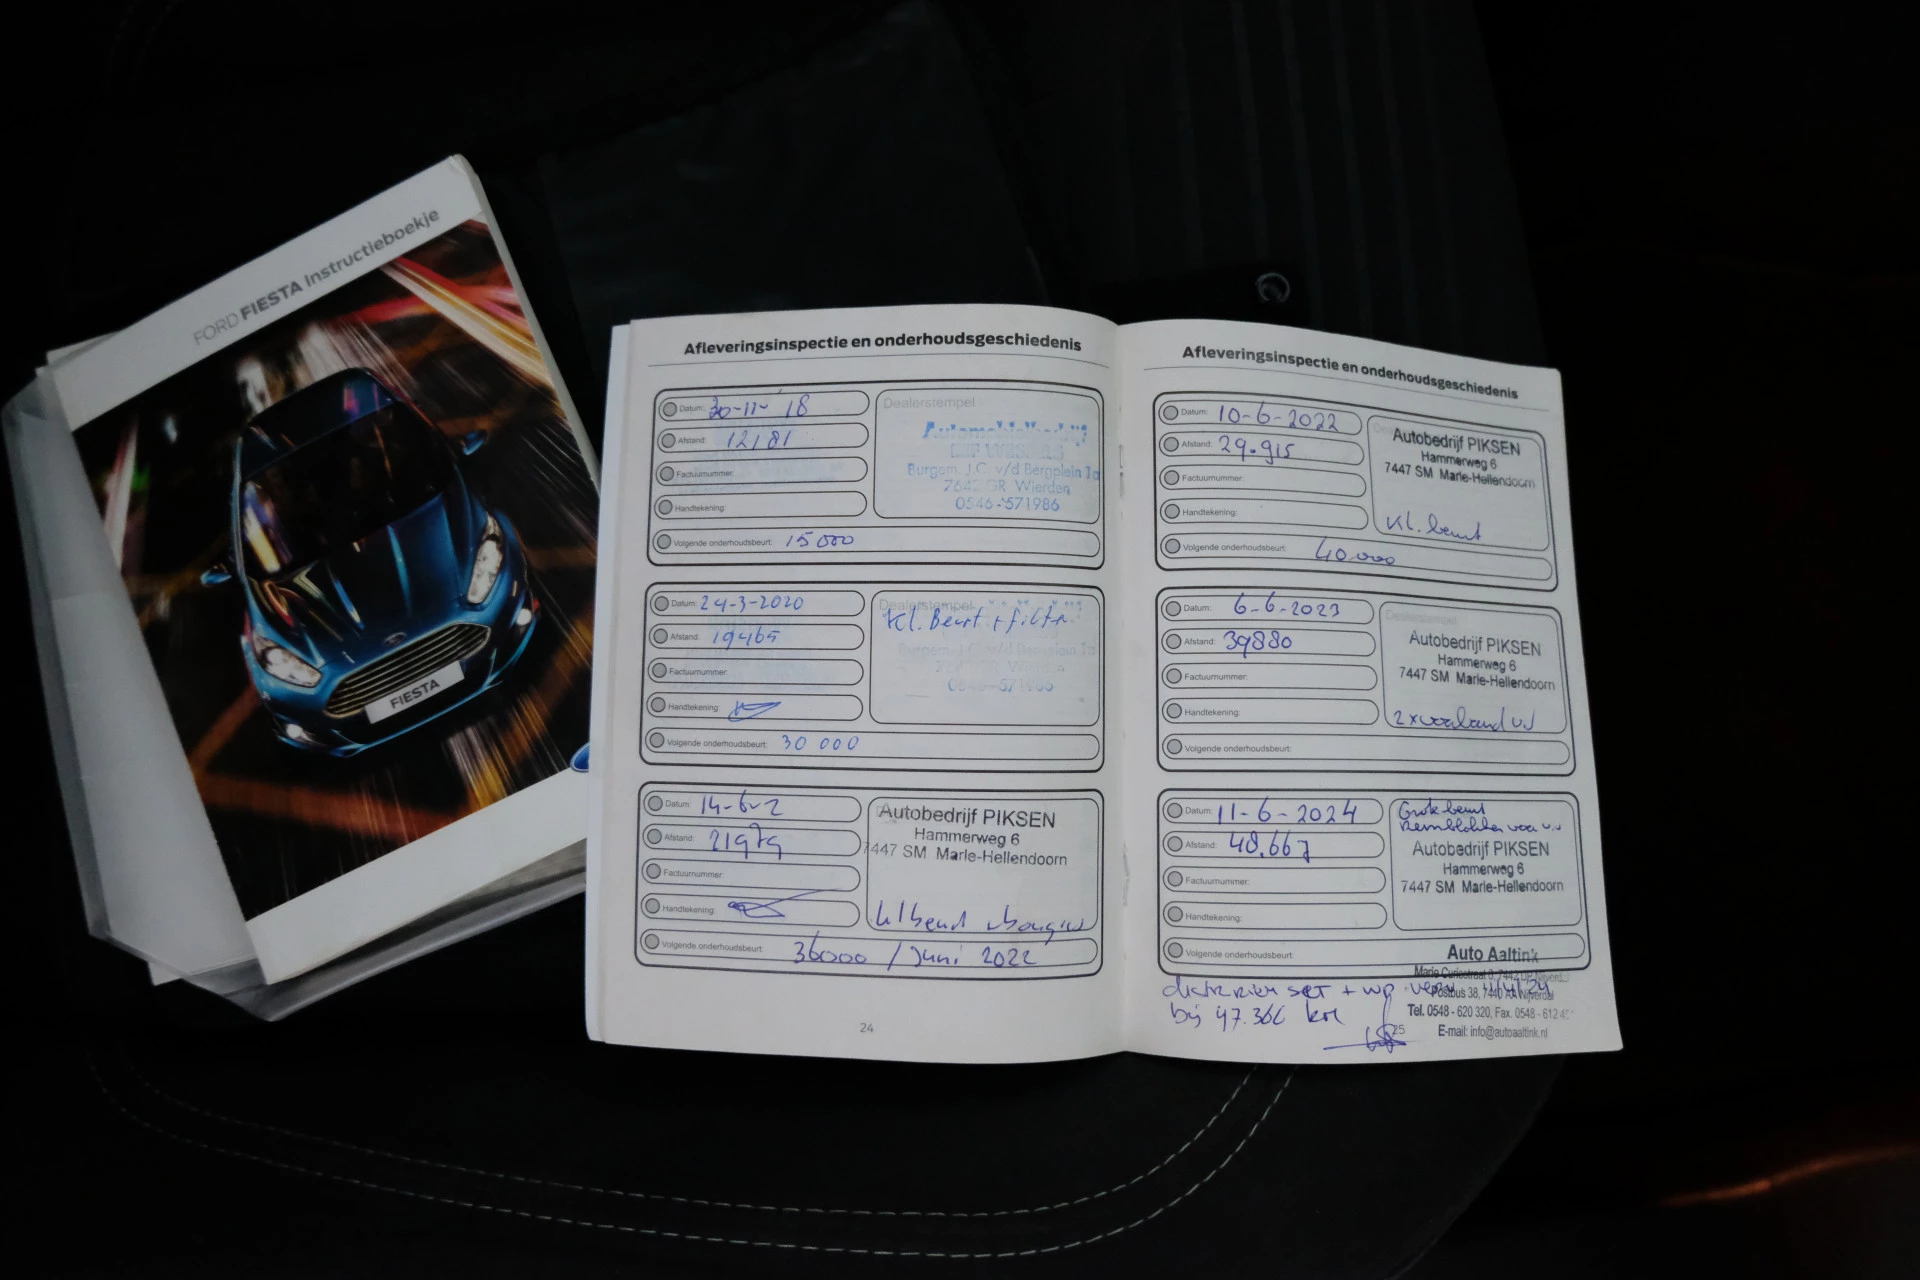 FORD FIESTA Instructieboekje
FIESTA
Afleveringsinspectie en onderhoudsgeschiedenis
Datum: 30-11-18
Afstand: 12181
Factuurnummer:
Handtekening:
Volgende onderhoudsbeurt: 15000
Dealerstempel
Automobielbedrijf
Burgem. J.C. v/d Bergplein 1a
7642 GR Wierden
0546-571986
Datum: 24-3-2020
Afstand: 19465
Factuurnummer:
Handtekening:
Volgende onderhoudsbeurt: 30 000
Dealerstempel
Kl. Beurt + filter
Burgem. J.C. v/d Bergplein 1a
7642 GR Wierden
0546-571986
Datum: 14-6-2
Afstand: 21979
Factuurnummer:
Handtekening:
Volgende onderhoudsbeurt: 36000 / Juni 2022
Autobedrijf PIKSEN
Hammerweg 6
7447 SM Marle-Hellendoorn
24
Afleveringsinspectie en onderhoudsgeschiedenis
Datum: 10-6-2022
Afstand: 29.915
Factuurnummer:
Handtekening:
Volgende onderhoudsbeurt: 40.000
Autobedrijf PIKSEN
Hammerweg 6
7447 SM Marle-Hellendoorn
Kl. beurt
Datum: 6-6-2023
Afstand: 39880
Factuurnummer:
Handtekening:
Volgende onderhoudsbeurt:
Dealerstempel
Autobedrijf PIKSEN
Hammerweg 6
7447 SM Marle-Hellendoorn
2x voorband v.v
Datum: 11-6-2024
Afstand: 48.667
Factuurnummer:
Handtekening:
Volgende onderhoudsbeurt:
Grote beurt
Remblokken voor v.v
Autobedrijf PIKSEN
Hammerweg 6
7447 SM Marle-Hellendoorn
Auto Aaltink
Postbus 38, 7440 AA Nijverdal
Tel. 0548 - 620 320, Fax. 0548 - 612 45
E-mail: info@autoaaltink.nl
distr riem set + wp
bij 47.366 km
25